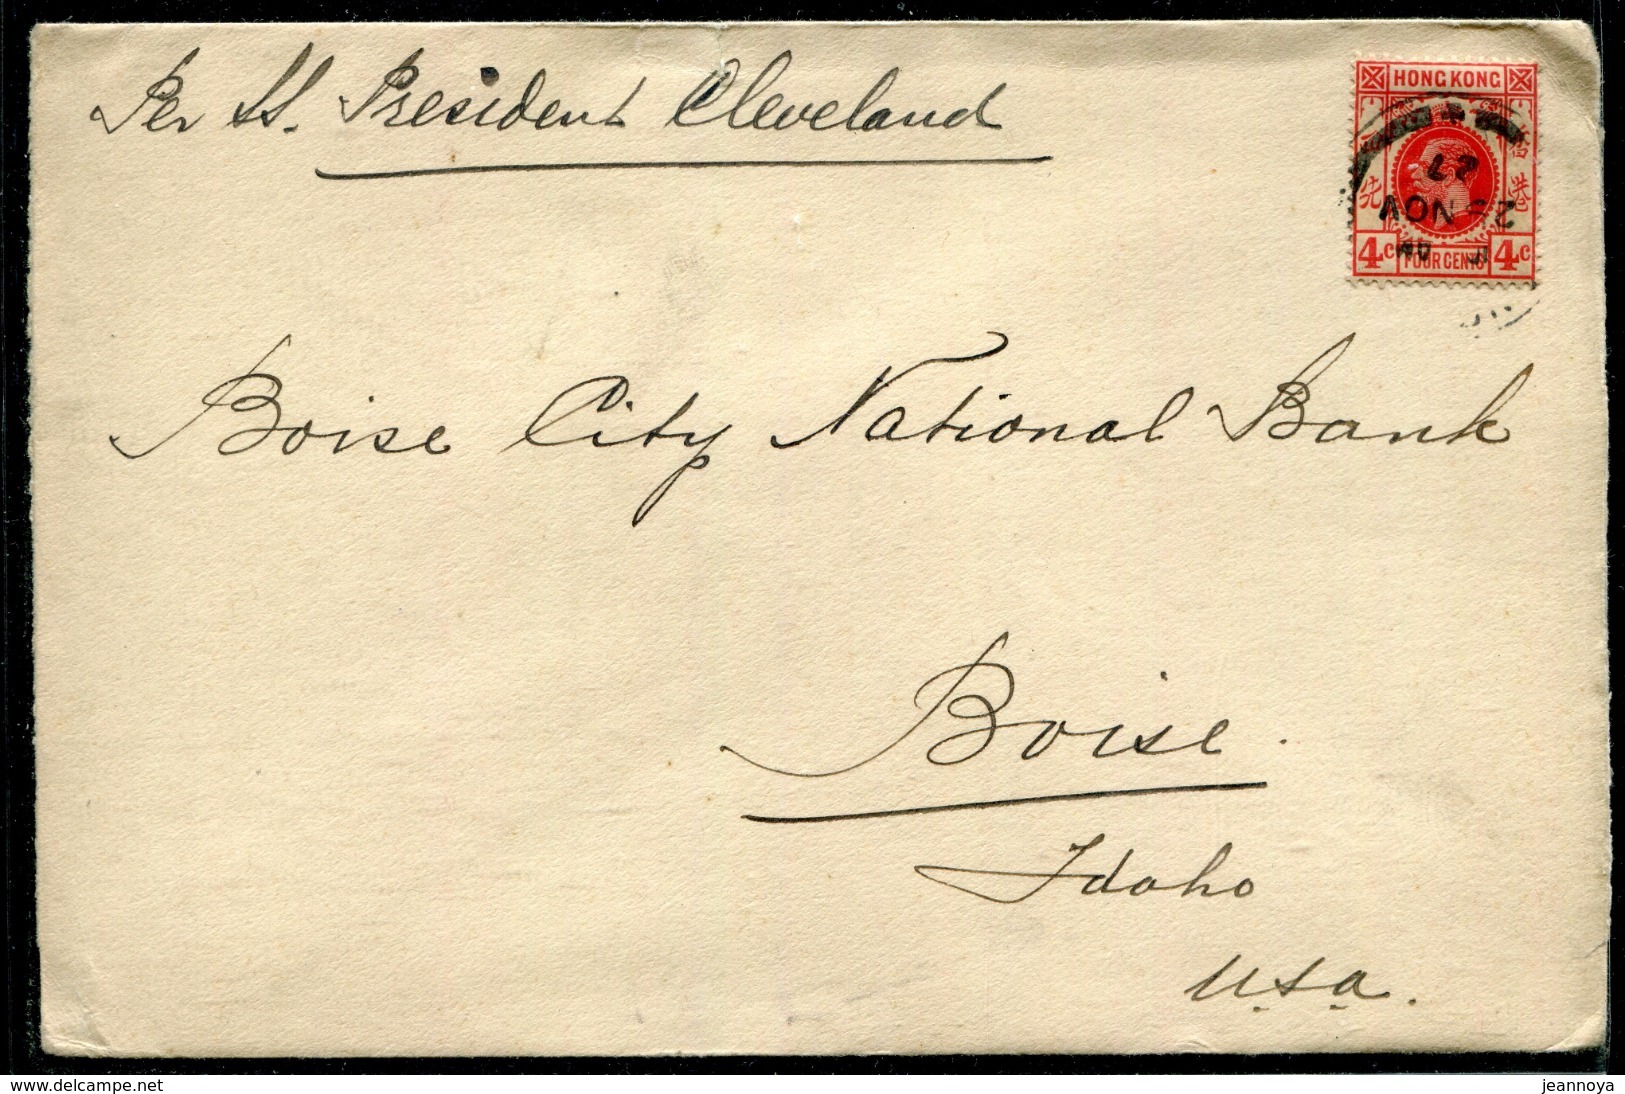 Per SS. President Cleveland
HONG KONG
香港
27
2 - NOV
4c FOUR CENTS 4c
Boise City National Bank
Boise.
Idaho
U.S.A.
delcampe.net
jeannoya